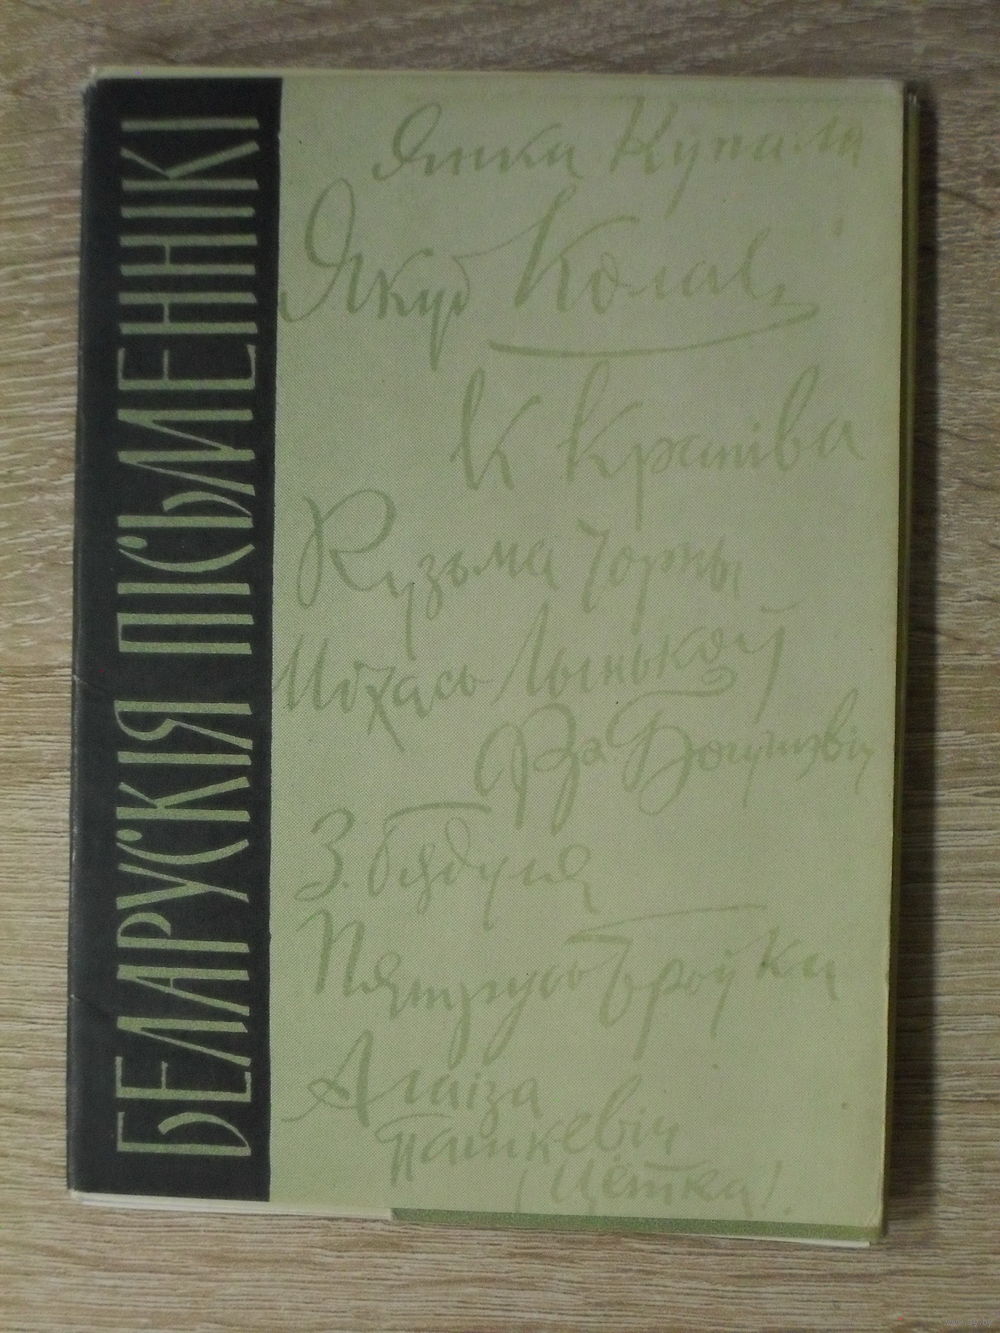 БЕЛАРУСКІЯ ПІСЬМЕННІКІ
Янка Купала
Якуб Колас
К Крапіва
Кузьма Чорны
Міхась Лынькоў
З. Бядуля
Пятрусь Броўка
Алаіза
Пашкевіч
(Цётка).